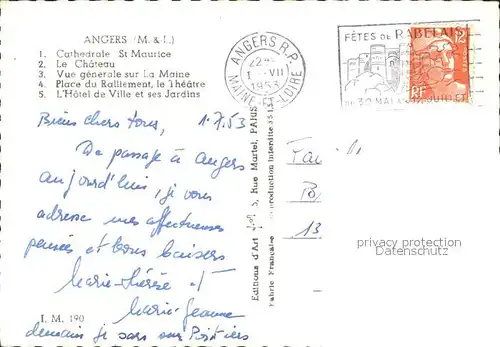 ANGERS (M. & L.)
1. Cathedrale St Maurice
2. Le Château
3. Vue générale sur La Maine
4. Place du Ralliement, le Théâtre
5. L'Hôtel de Ville et ses Jardins
ANGERS R.P.
1 - VII
1953
MAINE-ET-LOIRE
FÊTES de RABELAIS
DU 30 MAI AU JUILLET
12
RF
Biens chers tous, 1.7.53
De passage à Angers
aujourd'hui, je vous
adresse mes affectueuses
pensées et bons baisers
Marie-Thérèse et
Marie-Jeanne
demain je sars sur Poitiers
I. M. 190
Editions d'Art 5, Rue Martel, PARIS
Fabric Française Reproduction Interdite
13
privacy protection
Datenschutz.